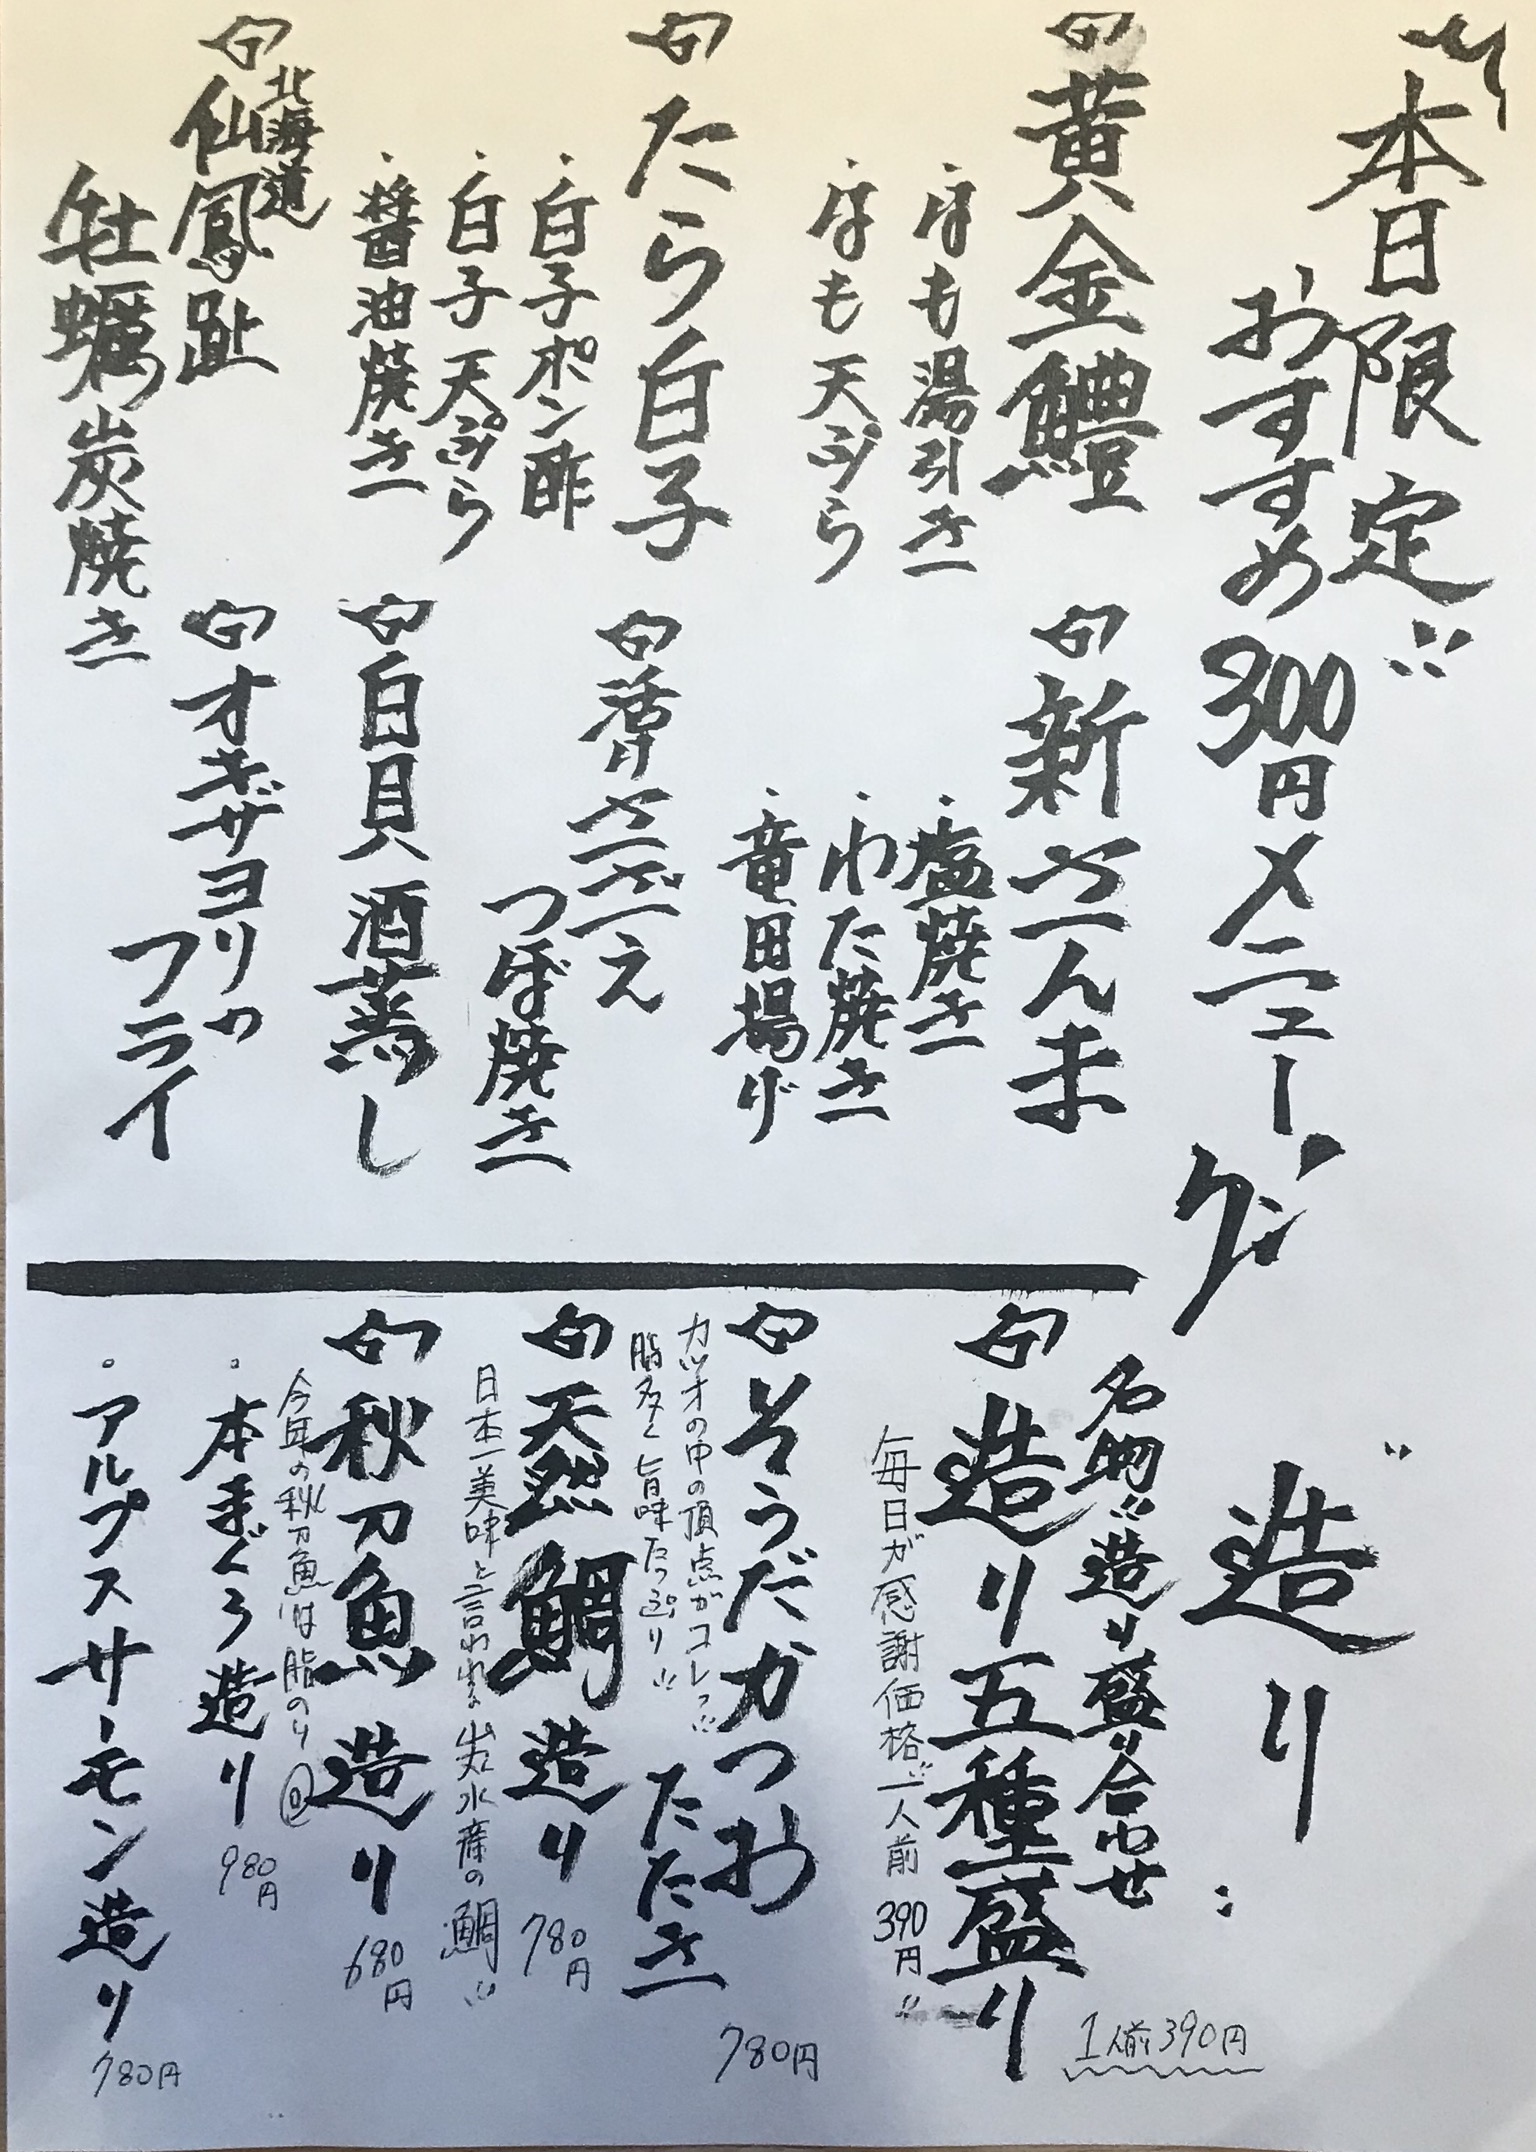 本日限定!!
おすすめ300円メニュー
黄金鱧
・はも湯引き
・はも天ぷら
たら白子
・白子ポン酢
・白子天ぷら
・醤油焼き
北海道
仙鳳趾
牡蠣炭焼き
新さんま
・塩焼き
・わた焼き
・竜田揚げ
活けさざえ
つぼ焼き
白貝酒蒸し
オキザヨリの
フライ
"造り"
名物!!造り盛り合わせ
1人前390円
造り五種盛り
毎日が感謝価格!!一人前390円!!
そうだガつお
たたき
780円
カツオの中の頂点がコレっ!!
脂多く旨味たっぷり!!
天然鯛造り
780円
日本一美味と言われる
水産の鯛!!
秋刀魚造り
680円
今年の秋刀魚は脂のり
・本まぐろ造り
980円
・アルプスサーモン造り
780円